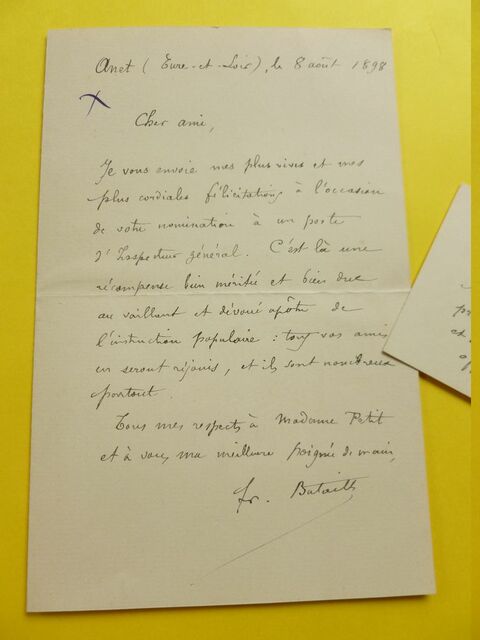 Anet (Eure-et-Loir), le 8 août 1898
Cher ami,
Je vous envoie mes plus vives et mes
plus cordiales félicitations à l'occasion
de votre nomination à un poste
d'Inspecteur général. C'est là une
récompense bien méritée et bien due
au vaillant et dévoué apôtre de
l'instruction populaire : tous vos amis
en seront réjouis, et ils sont nombreux
partout.
Tous mes respects à Madame Petit
et à vous, ma meilleure poignée de main,
fr. Bataille